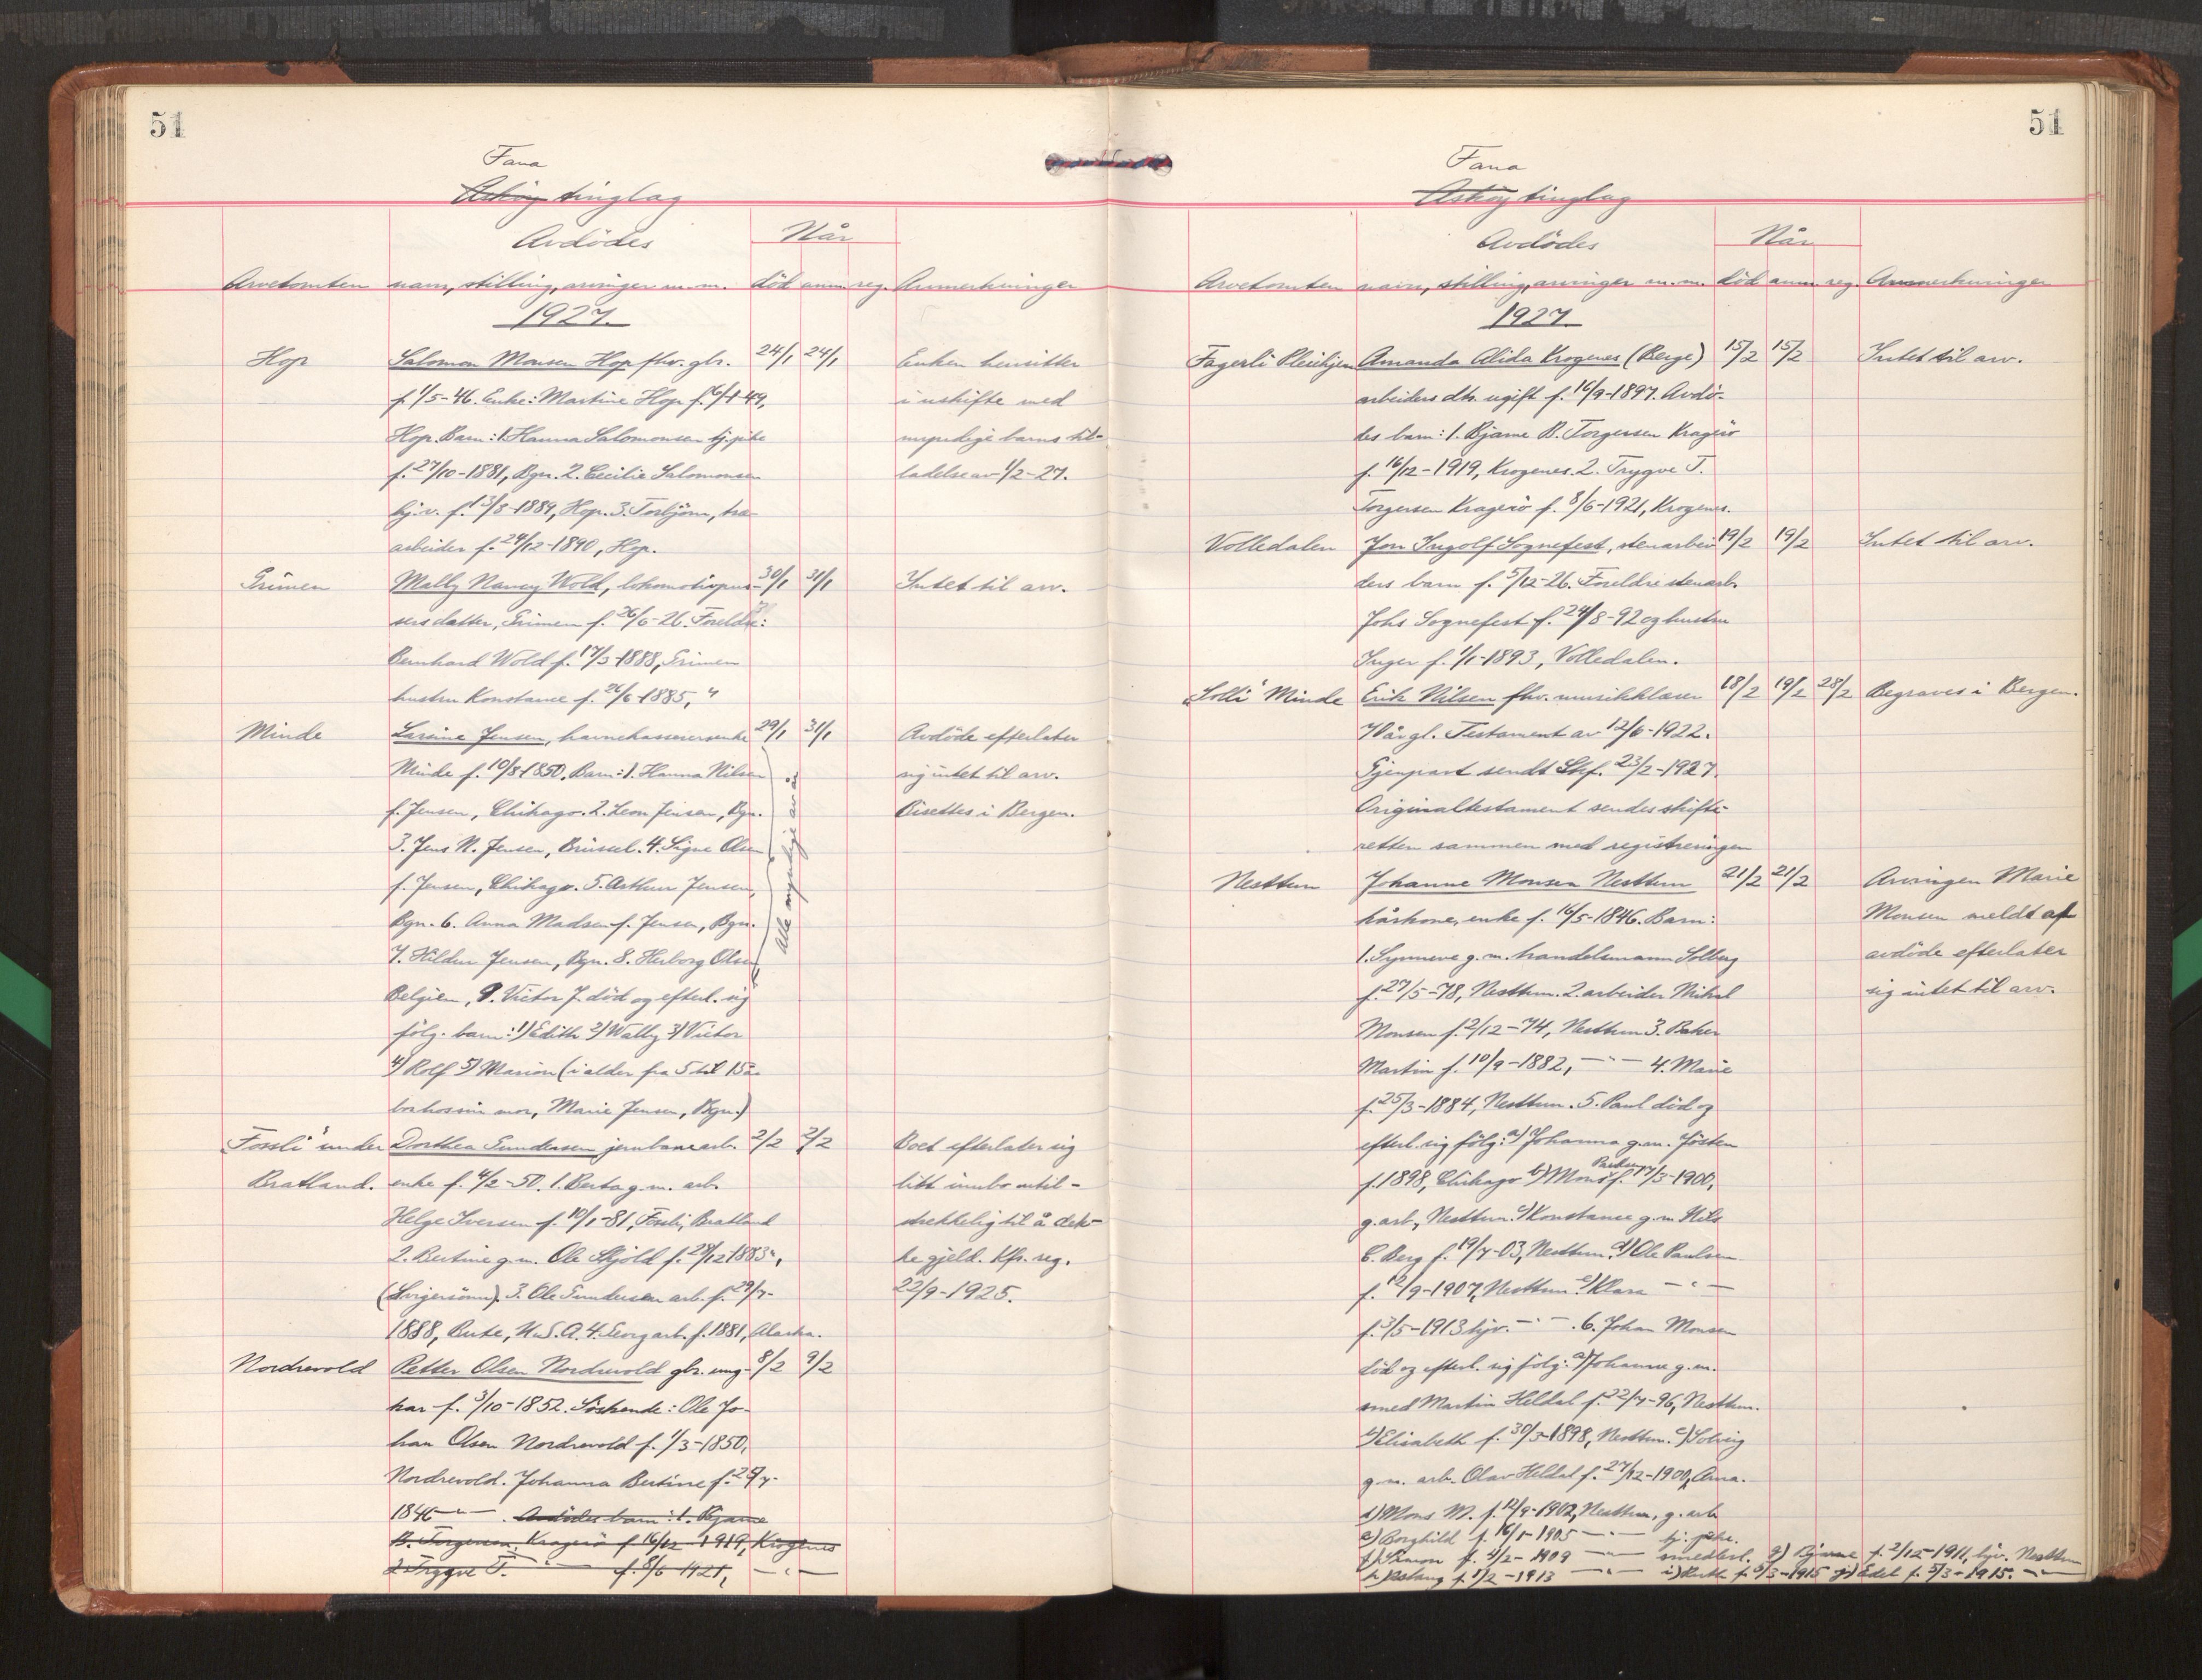 51
Fana
Askøy tinglag
Avdödes
Når
Arvetomten navn, stilling, arvinger m.m. död anm. reg. Anmerkninger
1927.
Hop Salomon Monsen Hop fhv. gbr. 24/1 24/1 Enken hensitter
f. 1/5-46. Enke: Martine Hop f. 49, i uskifte med
Hop. Barn: 1. Hanna Salomonsen tj.pike myndige barns til-
f. 27/10-1881, Bgn. 2. Cecilie Salomonsen ladelse av 1/2-27.
hj.v. f. 13/8-1889, Hop. 3. Torbjörn,
arbeider f. 24/12-1890, Hop.
Grimen Mally Nancy Wold, lokomotivpus- 30/1 31/1 Intet til arv.
sers datter, Grimen f. 26/6-26. Foreldre:
Bernhard Wold f. 17/3-1888, Grimen
hustru Konstance f. 26/6-1885, "
Minde Larsine Jensen, havnekasseiersenke 29/1 31/1 Avdöde efterlater
Minde f. 10/8-1850. Barn: 1. Hanna Nilsen sig intet til arv.
f. Jensen, Chikago. 2. Leon Jensen, Bgn. Bisettes i Bergen.
3. Jens N. Jensen, Brüssel. 4. Signe Olsen
f. Jensen, Chikago. 5. Arthur Jensen,
Bgn. 6. Anna Madsen f. Jensen, Bgn.
7. Hildur Jensen, Bgn. 8. Herborg Olsen
Alle myndige av år
Belgien, 9. Victor J. död og efterl. sig
fölg. barn: 1) Edith 2) Wally 3) Victor
4) Rolf 5) Marion (i alder fra 5 til 15 år
bor hos sin mor, Marie Jensen, Bgn.)
"Fossli" under Dorthea Gundersen jernbanearb. 2/2 2/2 Boet efterlater sig
Bratland. enke f. 4/2-50. 1. Berta g.m. arb. litt innbo util-
Helge Iversen f. 10/1-81, Fossli, Bratland strekkelig til å dek-
2. Bertine g.m. Ole Skjold f. 28/12 1883, ke gjeld. Kfr. reg.
(Svigersönn). 3. Ole Gundersen arb. f. 29/7- 22/9-1925.
1888, Bute, U.S.A. 4. Georg arb. f. 1881, Alaska.
Nordrevold Petter Olsen Nordrevold gbr. ung- 8/2 9/2
kar f. 3/10-1852. Söskende: Ole Jo-
han Olsen Nordrevold f. 1/3-1850,
Nordrevold. Johanna Bertine f. 29/7-
1846 — " — . Avdödes barn: 1. Bjarne
B. Torgersen Kragerö f 16/12 1919, Krogenes
2 Trygve T. — " — f. 8/6 1921, — " —
51
Fana
Askøy tinglag
Avdödes
Når
Arvetomten navn, stilling, arvinger m.m. död anm. reg. Anmerkninger
1927
Fagerli Pleiehjem Amanda Alida Krogenes (Berge) 15/2 15/2 Intet til arv.
arbeiders dtr. ugift f. 16/9-1897. Avdö-
des barn: 1. Bjarne B. Torgersen Kragerö
f. 16/12-1919, Krogenes. 2. Trygve T.
Torgersen Kragerö f. 8/6-1921, Krogenes.
Volledalen Jon Ingolf Sognefest, stenarbei- 19/2 19/2 Intet til arv.
ders barn f. 5/12-26. Foreldre stenarb.
Johs Sognefest f. 24/8-92 og hustru
Inger f. 1/1-1893, Volledalen.
"Solli" Minde Erik Nilsen fhv. musikklærer 18/2 19/2 28/2 Begraves i Bergen.
70 år gl. Testament av 12/6-1922.
Gjenpart sendt Skf. 23/2-1927.
Originaltestament sendes skifte-
retten sammen med registreringen
Nesttun Johanne Monsen Nesttun 21/2 21/2 Arvingen Marie
kårkone, enke f. 16/5-1846. Barn: Monsen meldt at
1. Synneve g.m. handelsmann Solberg avdöde efterlater
f. 27/5-78, Nesttun. 2. arbeider Mikal sig intet til arv.
Monsen f. 2/12-74, Nesttun 3. Baker
Martin f. 10/9-1882, — " — 4. Marie
f. 25/3-1884, Nesttun. 5. Paul död og
efterl. sig fölg: a) Johanna g.m. Jösten
f. 1898, Chikago b) Mons Paulsen f. 17/3-1900,
g.arb., Nesttun. c) Konstance g.m. Nils
C. Berg f. 19/7-03, Nesttun. d) Ole Paulsen
f. 12/9-1907, Nesttun. e) Klara — " —
f. 3/5-1913 hjv. — " — . 6. Johan Monsen
död og efterl. sig fölg: a) Johanne g.m.
smed Martin Heldal f. 22/7-96, Nesttun.
b) Elisabeth f. 30/3-1898, Nesttun. c) Solveig
g.m. arb. Olav Heldal f. 27/12-1900, Arna.
d) Mons M. f. 12/9-1902, Nesttun, g. arb
e) Borghild f. 16/1-1905 — " — tj. pike.
f) Simon f. 4/2-1909 — " — smedlærl. g) Bjarne f. 2/12-1911, hjv. Nesttun
f. 1/2-1913 — " — i) f. 5/3-1915 j) Edel f. 5/3-1915. — " —